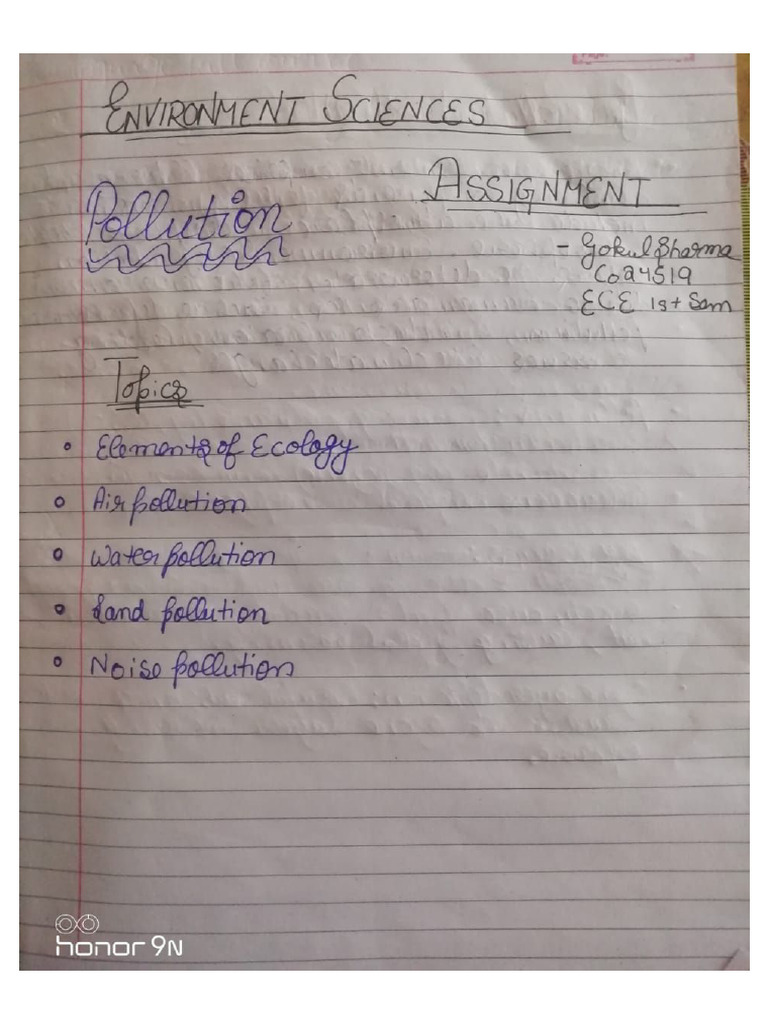 ENVIRONMENT SCIENCES
ASSIGNMENT
Pollution
- Gokul Sharma
Co24519
ECE 1st Sem
Topics
• Elements of Ecology
• Air pollution
• Water pollution
• Land pollution
• Noise pollution
honor 9N